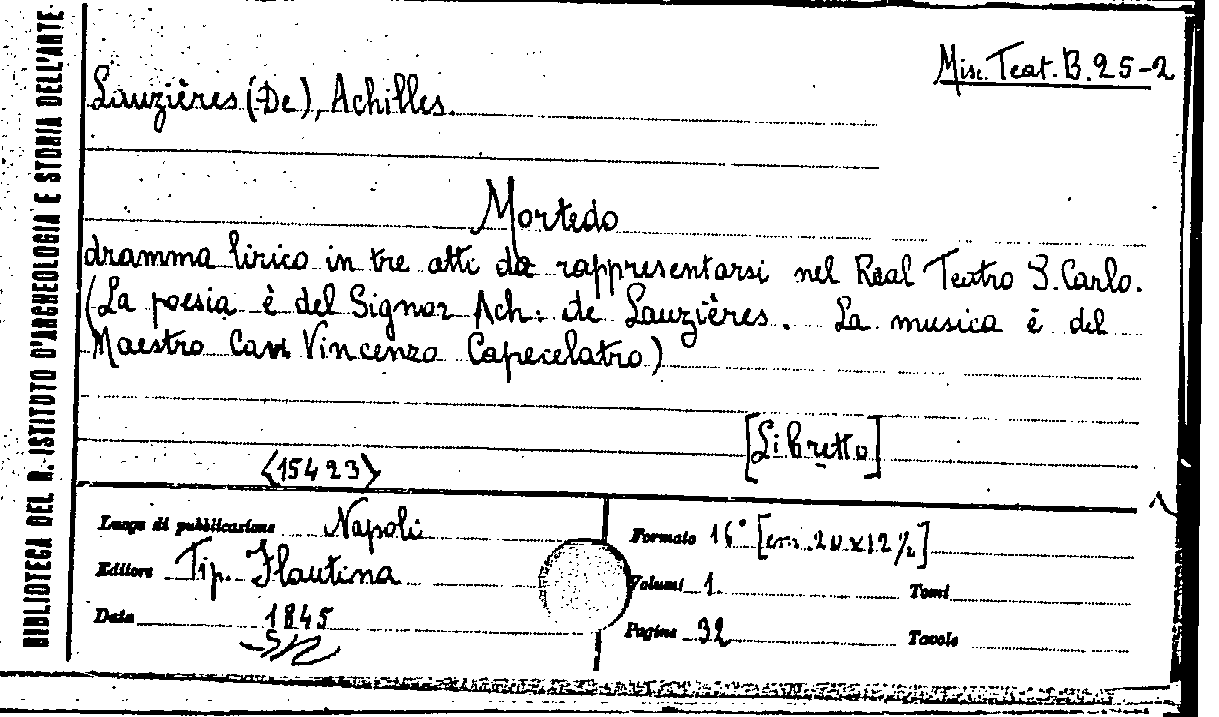 BIBLIOTECA DEL R. ISTITUTO D'ARCHEOLOGIA E STORIA DELL'ARTE
Misc. Teat. B. 25-2
Lauzières (De), Achilles.
Mortedo
dramma lirico in tre atti da rappresentarsi nel Real Teatro S. Carlo.
(La poesia è del Signor Ach: de Lauzières. La musica è del
Maestro Cav. Vincenzo Capecelatro)
[Libretto]
<15423>
Luogo di pubblicazione Napoli
Editore Tip. Flautina
Data 1845
Formato 16° [cm. 20x12½]
Volumi 1. Tomi
Pagine 32 Tavole